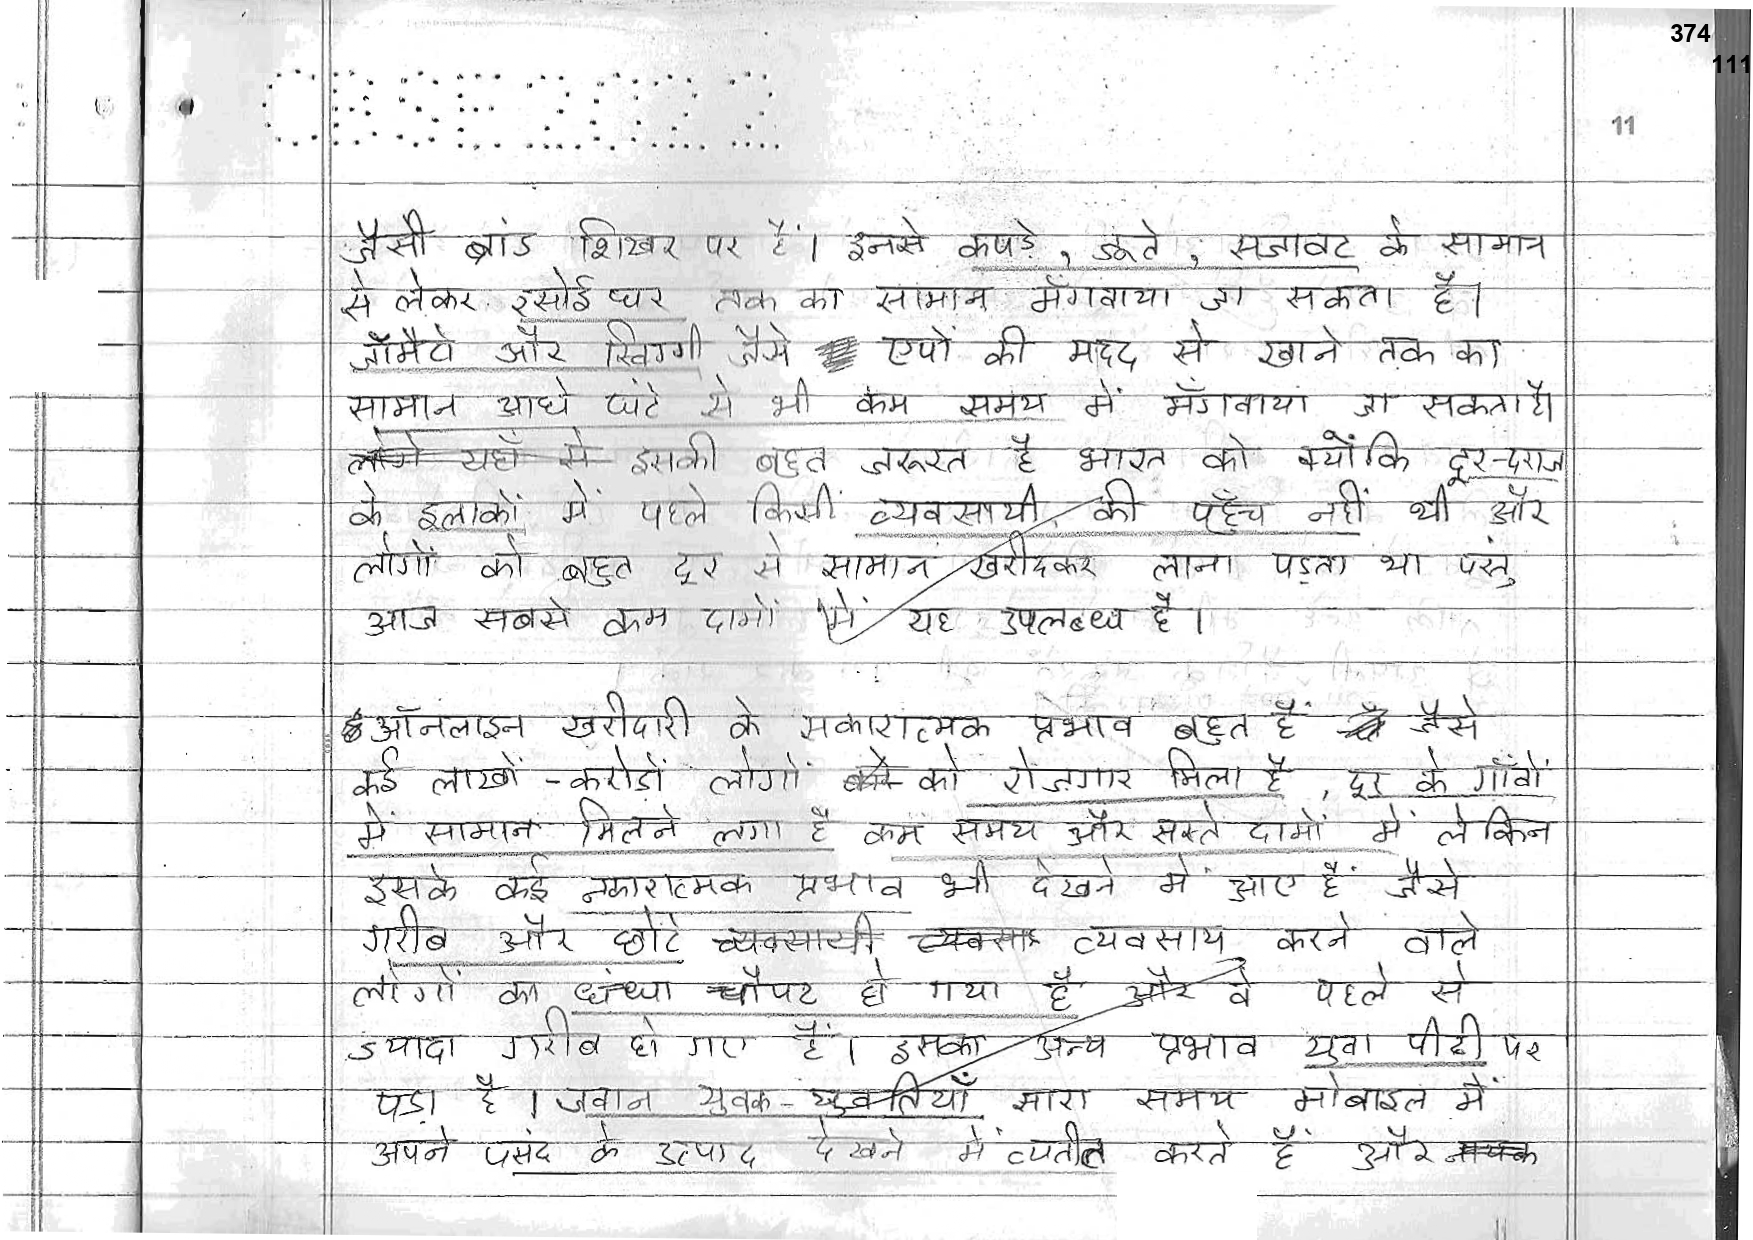 374
111
CBSE2022
11
जैसी ब्रांड शिखर पर हैं। इनसे कपड़े, जूते, सजावट के सामान
से लेकर रसोई घर तक का सामान मँगवाया जा सकता है।
जॉमैटो और स्विग्गी जैसे एपों की मदद से खाने तक का
सामान आधे घंटे से भी कम समय में मँगवाया जा सकता है।
यहाँ से इसकी बहुत जरूरत है भारत को क्योंकि दूर-दराज
के इलाकों में पहले किसी व्यवसायी की पहुँच नहीं थी और
लोगों को बहुत दूर से सामान खरीदकर लाना पड़ता था परंतु
आज सबसे कम दामों में यह उपलब्ध है।
ऑनलाइन खरीदारी के सकारात्मक प्रभाव बहुत हैं जैसे
कई लाखों-करोड़ों लोगों को रोज़गार मिला है, दूर के गाँवों
में सामान मिलने लगा है कम समय और सस्ते दामों में लेकिन
इसके कई नकारात्मक प्रभाव भी देखने में आए हैं जैसे
गरीब और छोटे व्यवसायी व्यवसा व्यवसाय करने वाले
लोगों का धंधा चौपट हो गया है और वे पहले से
ज्यादा गरीब हो गए हैं। इसका अन्य प्रभाव युवा पीढी पर
पड़ा है। जवान युवक-युवतियाँ सारा समय मोबाइल में
अपने पसंद के उत्पाद देखने में व्यतीत करते हैं और